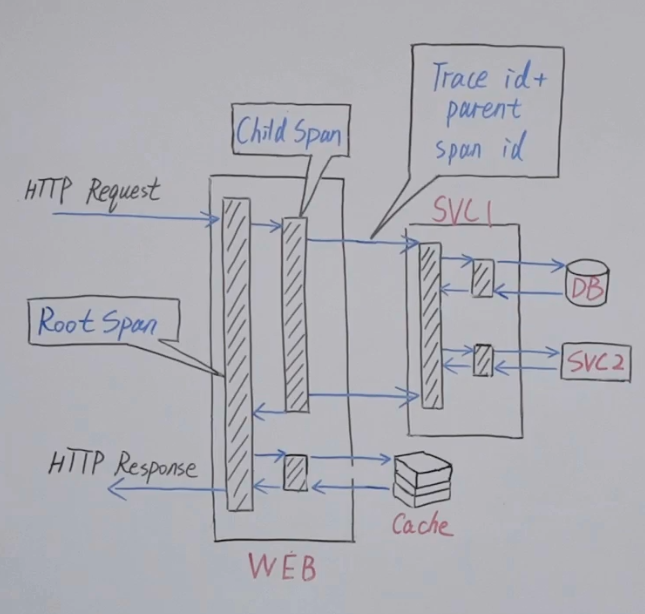 Trace id+
parent
span id
Child Span
HTTP Request
SVC1
DB
Root Span
SVC2
HTTP Response
Cache
WEB